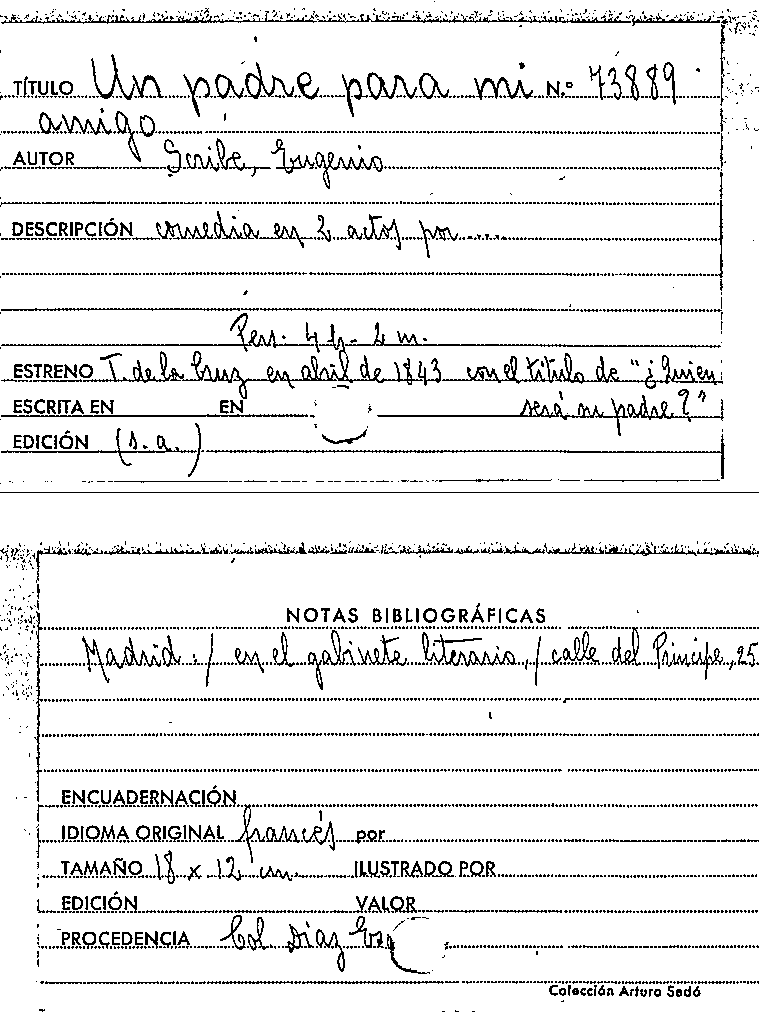 TÍTULO Un padre para mi N.º 73889
amigo
AUTOR Scribe, Eugenio
DESCRIPCIÓN comedia en 2 actos por....
Pers. 4 h- 2 m.
ESTRENO T. de la Cruz en abril de 1843 con el título de "¿Quien
ESCRITA EN EN será mi padre?"
EDICIÓN (s.a.)
NOTAS BIBLIOGRÁFICAS
Madrid:/ en el gabinete literario,/ calle del Principe, 25
ENCUADERNACIÓN
IDIOMA ORIGINAL francés por
TAMAÑO 18 x 12 cm. ILUSTRADO POR
EDICIÓN VALOR
PROCEDENCIA Col Díaz
Colección Arturo Sedó